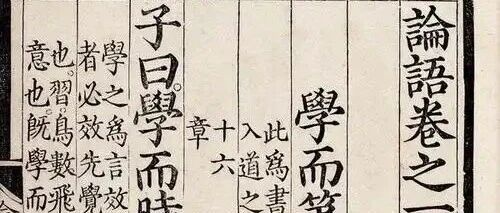 論語卷之一
學而第
此爲書
入道之
十六
章
子曰學而時
學之爲言效
者必效先覺
也。習鳥數飛
意也。旣學而